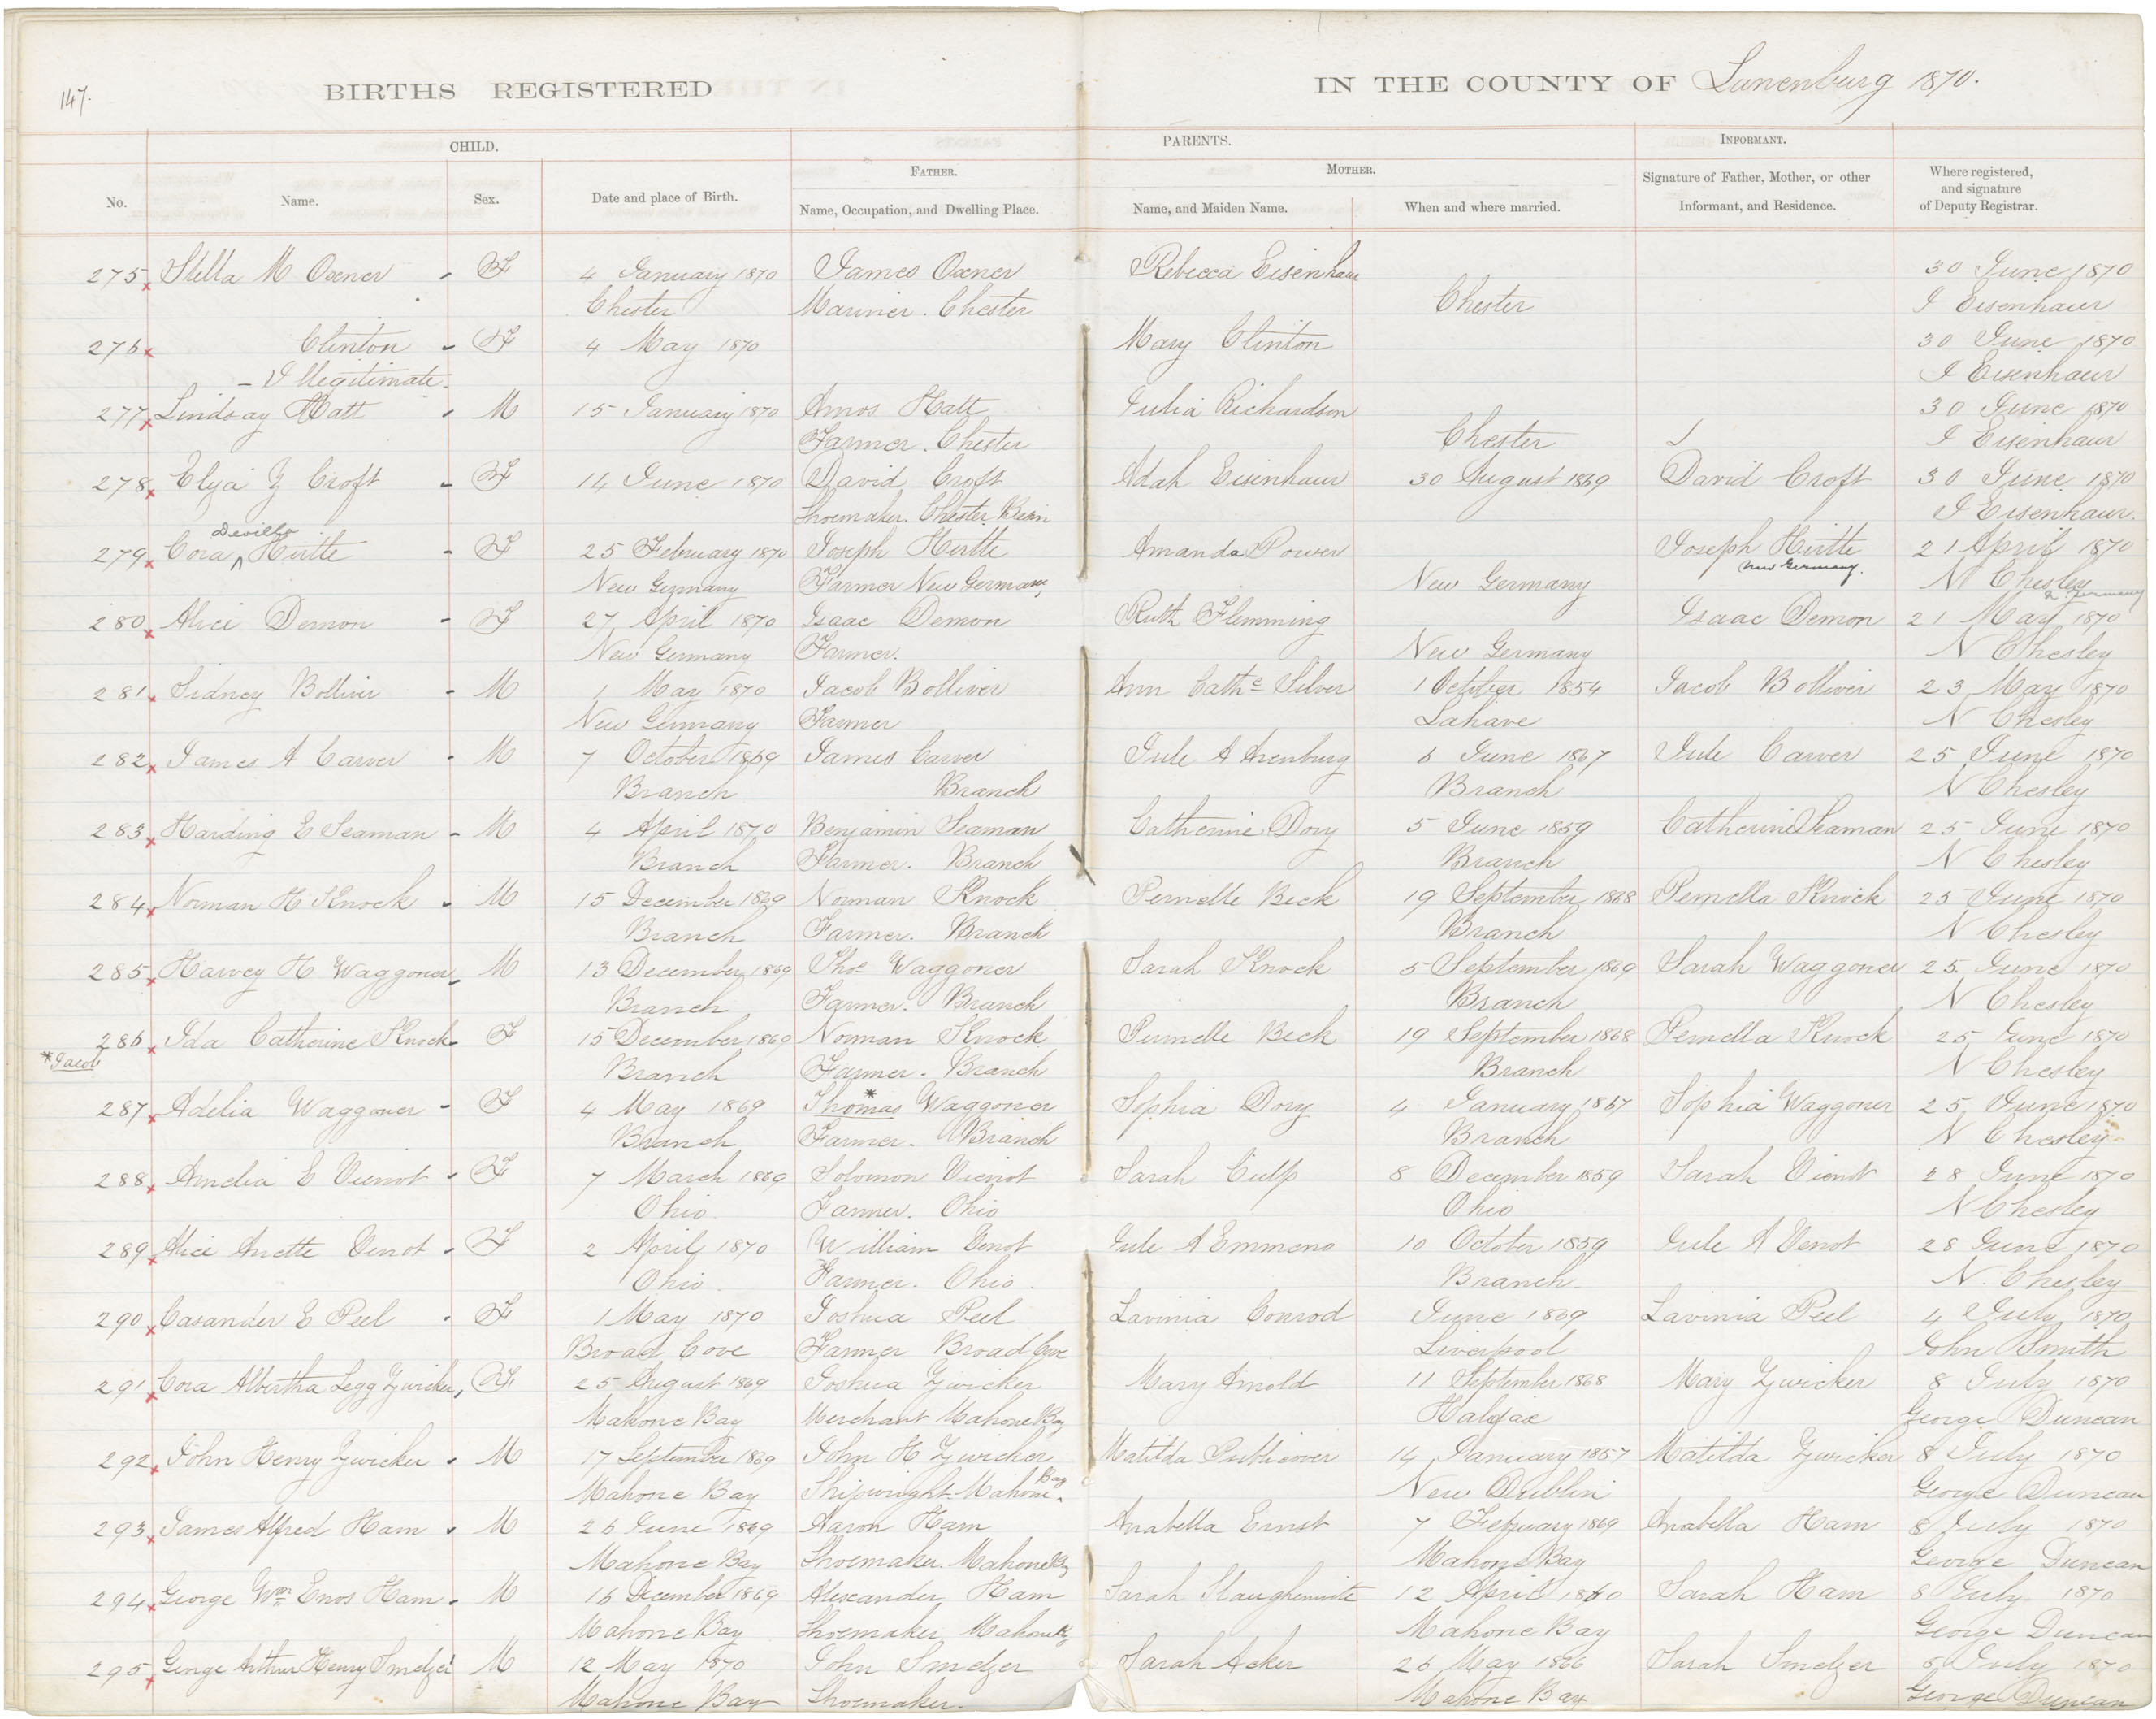 147.
BIRTHS REGISTERED IN THE COUNTY OF Lunenburg 1870.
CHILD. PARENTS. INFORMANT.
FATHER. MOTHER.
No. Name. Sex. Date and place of Birth. Name, Occupation, and Dwelling Place. Name, and Maiden Name. When and where married. Signature of Father, Mother, or other Informant, and Residence. Where registered, and signature of Deputy Registrar.
275 Stella M Oxner - F 4 January 1870 James Oxner Rebecca Eisenhaur 30 June 1870
Chester Mariner. Chester Chester J Eisenhaur
276 Clinton - F 4 May 1870 Mary Clinton 30 June 1870
- Illegitimate - J Eisenhaur
277 Lindsay Hatt - M 15 January 1870 Amos Hatt Julia Richardson 30 June 1870
Farmer. Chester Chester J Eisenhaur
278 Croft - F 14 June 1870 David Croft Adah Eisenhaur 30 August 1869 David Croft 30 June 1870
Shoemaker. Chester Basin J Eisenhaur.
Devilla
279 Cora ^ Hirtle - F 25 February 1870 Joseph Hirtle Amanda Power Joseph Hirtle 21 April 1870
New Germany Farmer New Germany New Germany New Germany. N Chesley
N Germany
280 Alice Demon - F 27 April 1870 Isaac Demon Ruth Flemming Isaac Demon 21 May 1870
New Germany Farmer. New Germany N Chesley
281 Sidney Bolliver - M 1 May 1870 Jacob Bolliver Ann Cathe Silver 1 October 1854 Jacob Bolliver 23 May 1870
New Germany Farmer Lahave N Chesley
282 James A Carver - M 7 October 1869 James Carver Jule A Arenburg 6 June 1867 Jule Carver 25 June 1870
Branch Branch Branch N Chesley
283 Harding E Seaman - M 4 April 1870 Benjamin Seaman Catherine Dory 5 June 1859 Catherine Seaman 25 June 1870
Branch Farmer. Branch Branch N Chesley
284 Norman H Knock - M 15 December 1869 Norman Knock Pernelle Beck 19 September 1868 Pernella Knock 25 June 1870
Branch Farmer. Branch Branch N Chesley
285 Harvey H Waggoner - M 13 December 1869 Thos Waggoner Sarah Knock 5 September 1869 Sarah Waggoner 25 June 1870
Branch Farmer. Branch Branch N Chesley
286 Ida Catherine Knock - F 15 December 1869 Norman Knock Pernelle Beck 19 September 1868 Pernella Knock 25 June 1870
*Jacob Branch Farmer. Branch Branch N Chesley
287 Adelia Waggoner - F 4 May 1869 Thomas* Waggoner Sophia Dory 4 January 1867 Sophia Waggoner 25 June 1870
Branch Farmer. Branch Branch N Chesley
288 Amelia E Vienot - F 7 March 1869 Solomon Vienot Sarah Culp 8 December 1859 Sarah Vienot 28 June 1870
Ohio. Farmer. Ohio Ohio N Chesley
289 Alice Anette Venot - F 2 April 1870 William Venot Jule A Emmeno 10 October 1859 Jule A Venot 28 June 1870
Ohio. Farmer. Ohio. Branch N. Chesley
290 Casander E Peel - F 1 May 1870 Joshua Peel Lavinia Conrod June 1869 Lavinia Peel 4 July 1870
Broad Cove Farmer Broad Cove Liverpool John Smith
291 Cora Albertha Legg Zwicker, F 25 August 1869 Joshua Zwicker Mary Arnold 11 September 1868 Mary Zwicker 8 July 1870
Mahone Bay Merchant Mahone Bay Halifax George Duncan
292 John Henry Zwicker - M 17 September 1869 John H Zwicker Matilda Publicover 14 January 1857 Matilda Zwicker 8 July 1870
Mahone Bay Shipwright. Mahone Bay. New Dublin George Duncan
293 James Alfred Ham - M 26 June 1869 Aaron Ham Anabella Ernst 7 February 1869 Anabella Ham 8 July 1870
Mahone Bay Shoemaker. Mahone Bay Mahone Bay George Duncan
294 George Wm Enos Ham - M 16 December 1869 Alexander Ham Sarah Slaughenwite 12 April 1860 Sarah Ham 8 July 1870
Mahone Bay Shoemaker Mahone B Mahone Bay George Duncan
295 George Arthur Henry Smelzer M 12 May 1870 John Smelzer Sarah Acker 26 May 1866 Sarah Smelzer 8 July 1870
Mahone Bay Shoemaker. Mahone Bay George Duncan